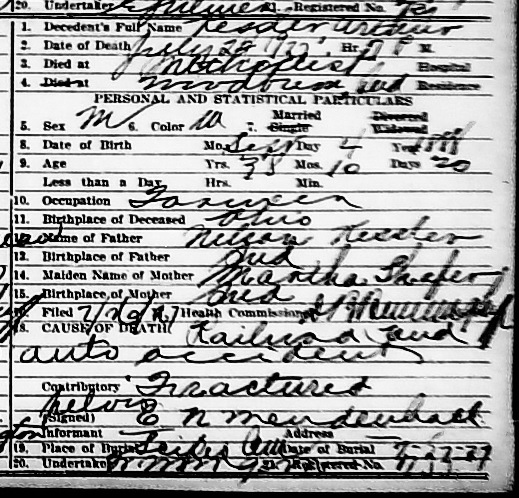 20. Undertaker 21. Registered No.
1. Decedent's Full Name Kessler Arthur
2. Date of Death July 24 1927 Hr. P M.
3. Died at Methodist Hospital
4. Died at Ind Residence
PERSONAL AND STATISTICAL PARTICULARS
5. Sex M 6. Color W 7. Married Single Divorced Widowed
8. Date of Birth Mo. Sept Day 4 Year 1888
9. Age Yrs. 38 Mos. 10 Days 20
Less than a Day Hrs. Min.
10. Occupation Farmer
11. Birthplace of Deceased Ohio
12. Name of Father Nelson Kessler
13. Birthplace of Father Ind
14. Maiden Name of Mother Martha Shafer
15. Birthplace of Mother Ind
Filed 7/26/27 Health Commissioner
18. CAUSE OF DEATH Railroad and
auto accident
Contributory Fractured
pelvis
(Signed) E N Mendenhall
Informant Address
19. Place of Burial Date of Burial 7-27-27
20. Undertaker 21. Registered No.